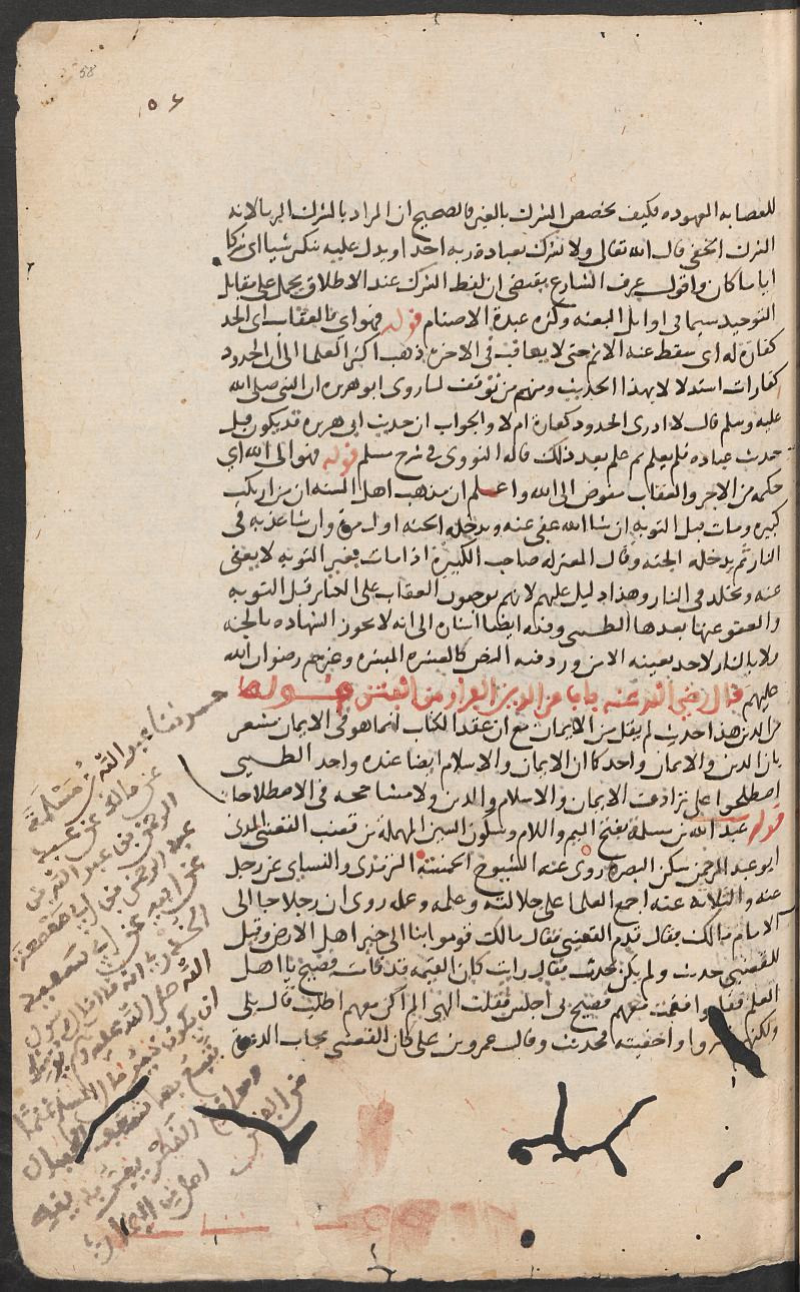 58
٥٦
للعصابه المعهوده فكيف يخصص الشرك بالغير فالصحيح ان المراد بالشرك الريا لانه
الشرك الخفى قال الله تعالى ولا يشرك بعبادة ربه احدا ويدل عليه تنكير شيا اى شركا
ايا ما كان واقول عرف الشارع يقتضى ان لفظ الشرك عند الاطلاق يحمل على مقابل
التوحيد سيما فى اوايل البعثه وكثره عبدة الاصنام قوله فهو اى فالعقاب اى الحد
كفارة له اى سقط عنه الاثم حتى لا يعاقب فى الاخره ذهب اكثر العلما الى ان الحدود
كفارات استدلالا بهذا الحديث ومنهم من توقف لما روى ابو هريره ان النبى صلى الله
عليه وسلم قال لا ادرى الحدود كفارة ام لا والجواب ان حديث ابى هريره قد يكون قبل
حديث عباده فلم يعلم ثم علم بعد ذلك قاله النووى فى شرح مسلم قوله فهو الى الله اى
حكمه من الاجر والعقاب مفوض الى الله واعلم ان مذهب اهل السنه ان من ارتكب
كبيره ومات قبل التوبه ان شا الله عفى عنه ويدخله الجنه اول مرة وان شا عذبه فى
النار ثم يدخله الجنه وقال المعتزله صاحب الكبيرة اذا مات بغير التوبه لا يعفى
عنه ويخلد فى النار وهذا دليل عليهم لانهم يوجبون العقاب على الكباير قبل التوبه
والعفو عنها بعدها الطيبى وفيه ايضا اشاره الى انه لا يجوز الشهاده بالجنه
ولا بالنار لاحد بعينه الا من ورد فيه النص كالعشره المبشره وغيرهم رضوان الله
عليهم قال رضي الله عنه باب من الدين الفرار من الفتن قوله
من الدين هذا حديث لم يقل من الايمان مع ان عقد الكتاب انما هو فى الايمان مشعر
بان الدين والايمان واحد كما ان الايمان والاسلام ايضا عنده واحد الطيبى
اصطلحوا على ترادف الايمان والاسلام والدين ولا مشاححه فى الاصطلاحات
قوله عبد الله بن مسلمة بفتح الميم واللام وسكون السين المهمله بن قعنب القعنبى المدنى
ابو عبد الرحمن سكن البصره روى عنه الشيوخ الخمسة الترمذى والنساى عن رجل
عنه والثلاثه عنه اجمع العلما على جلالته وعلمه وعمله روى ان رجلا جا الى
الامام مالك فقال قدم القعنبى فقال مالك قوموا بنا الى خير اهل الارض وقيل
للقعنبى حدث ولم يكن يحدث فقال رايت كان القيمه قد قامت فصيح يا اهل
العلم فقاموا فقمت معهم فصيح بى اجلس فقلت الهى الم اكن معهم اطلب قال بلى
ولكنهم نشروا واخفيته فحدث وقال عمرو بن على كان القعنبى مجاب الدعوة
حدثنا عبد الله بن مسلمة
عن مالك عن عبد
الرحمن بن عبد الله بن
عبد الرحمن بن ابى صعصعة
عن ابيه عن ابى سعيد
الخدرى انه قال قال رسول
الله صلى الله عليه وسلم يوشك
ان يكون خير مال المسلم غنما
يتبع بها شعف الجبال
ومواقع القطر يفر بدينه
من الفتن